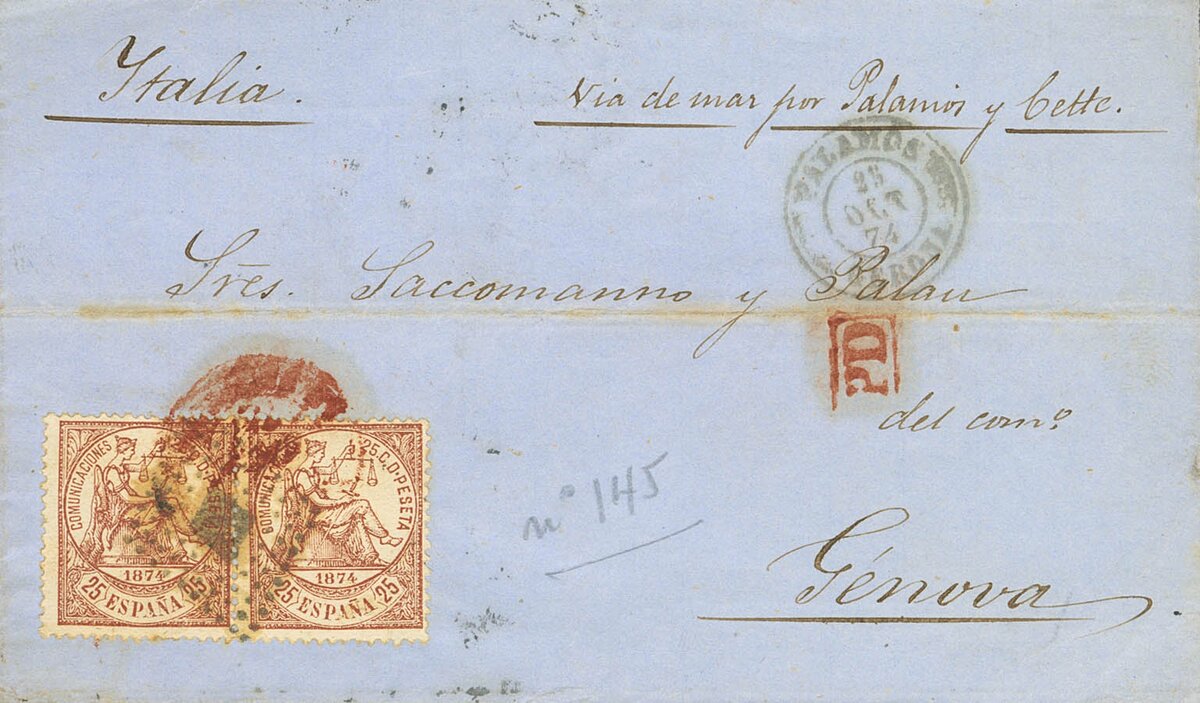 Italia.
Via de mar por Palamós y Cette.
PALAMOS
25
OCT
74
GERONA
Sres. Saccomanno y Palau
PD
del comº
nº 145
Génova
COMUNICACIONES
1874
25 ESPAÑA 25
COMUNICACIONES 25 C. D PESETA
1874
25 ESPAÑA 25